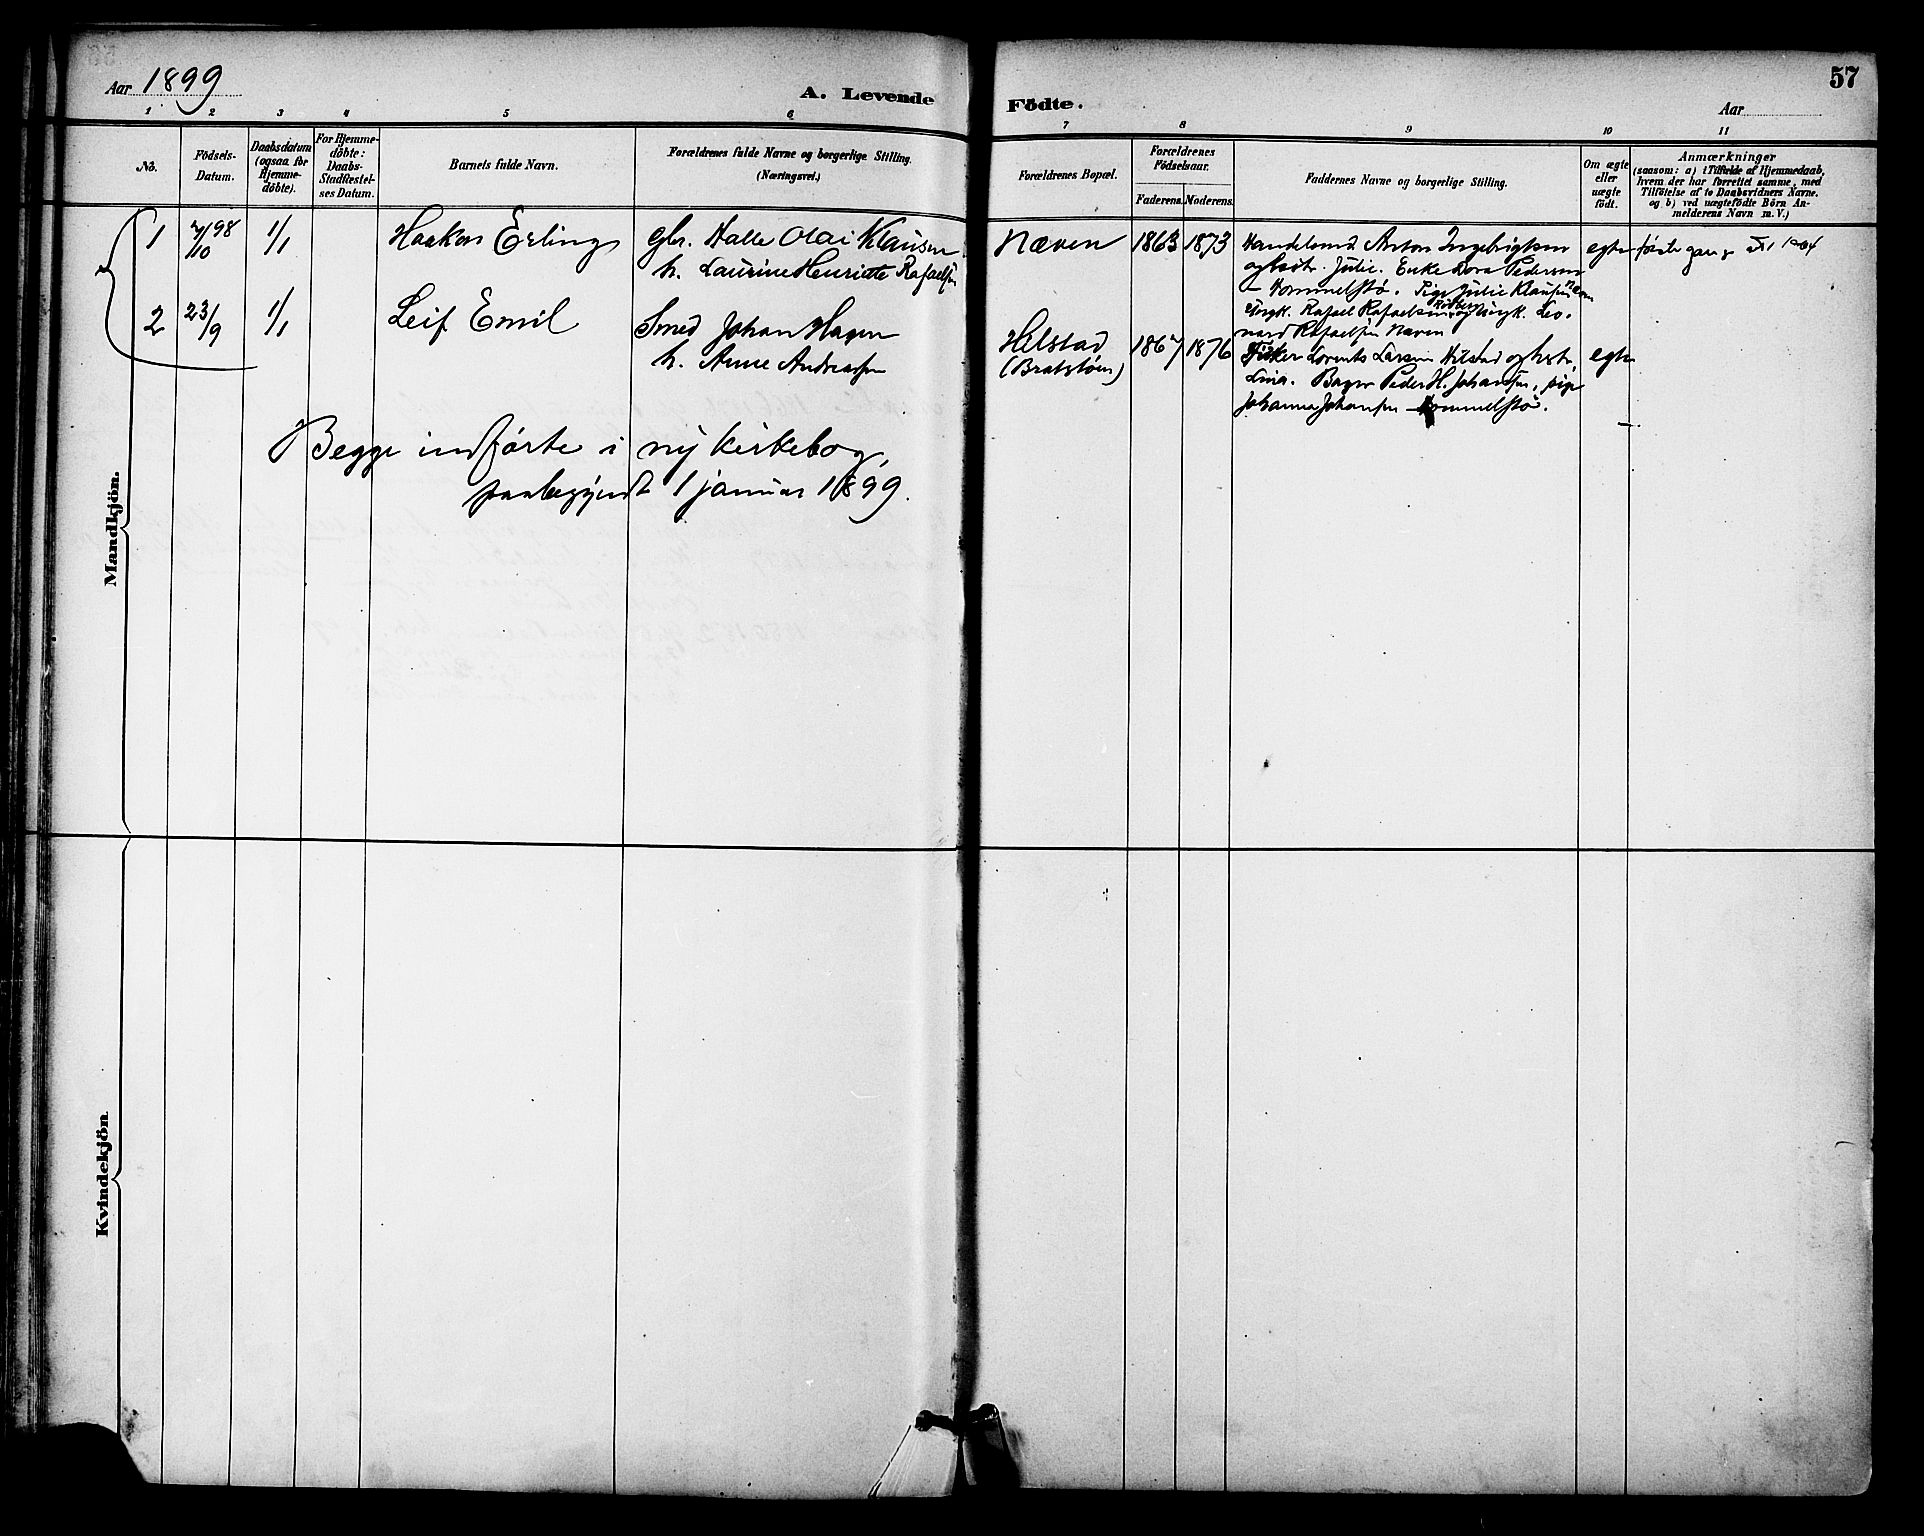 Aar 1899
A. Levende
Födte.
Aar
57
1 2 3 4 5 6 7 8 9 10 11
No.
Födsels-
Datum.
Daabsdatum
(ogsaa for
Hjemme-
döbte).
For Hjemme-
döbte:
Daabs-
Stadfæstel-
ses Datum.
Barnets fulde Navn.
Forældrenes fulde Navne og borgerlige Stilling.
(Næringsvei.)
Forældrenes Bopæl.
Forældrenes
Födselsaar.
Faderens. Moderens.
Faddernes Navne og borgerlige Stilling.
Om ægte
eller
uægte
födt.
Anmærkninger
(saasom: a) i Tilfælde af Hjemmedaab,
hvem der har forrettet samme, med
Tilföielse af to Daabsvidners Navne.
og b) ved uægtefödte Börn An-
melderens Navn m. V.)
Mandkjön.
1
7/10 98
1/1
Haakon Erling
Gbr. Halle Olai Klausen
h. Laurine Henriette Rafaelsen
Næven
1863
1873
Handelsmd Anton Ingebrigtsen
og hustr. Julie. Enke Dora Pedersen
- Hommelstø. Pige Julie Klausen Næven
Ungk. Rafael Rafaelsen og ungk. Leo-
nard Rafaelsen Næven
egte
første gang
2
23/9
1/1
Leif Emil
Smed Johan Hagen
h. Anne Andreassen
Helstad
(Bratstøen)
1867
1876
Fisker Lorents Larsen Hilstad og hustr.
Lina. Bager Peder H. Johansen, pige
Johanna Johansen - Hommelstø.
egte
Begge indførte i ny kirkebog,
paabegyndt 1 januar 1899.
Kvindekjön